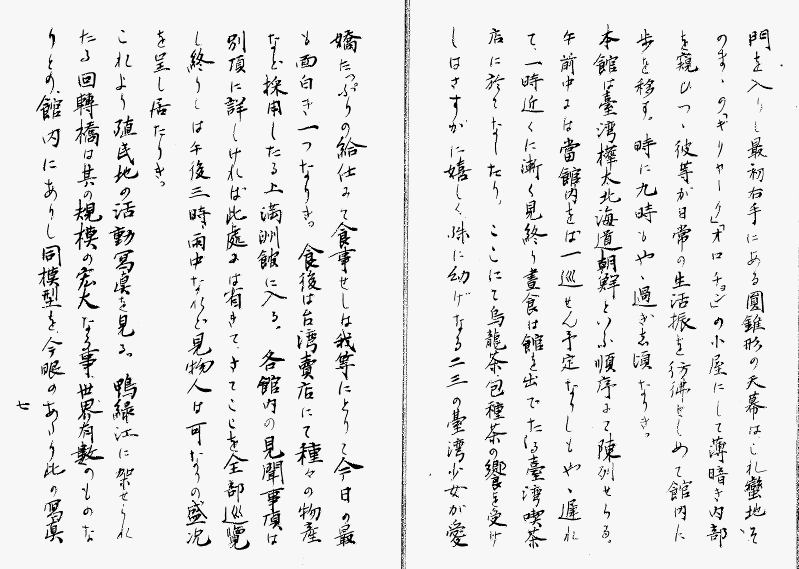 門を入りし最初右手にある圓錐形の天幕はこれ蠻地そ
のまゝの「ギリヤーク」「オロチョン」の小屋にして薄暗き内部
を窺ひつゝ彼等が日常の生活振を彷彿せしめて館内に
歩を移す。時に九時もやゝ過ぎし頃なりき。
本館は臺湾樺太北海道朝鮮といふ順序にて陳列せらる。
午前中には當館内をば一巡せん予定なりしもやゝ遅れ
て、一時近くに漸く見終り晝食は館を出でたる臺湾喫茶
店に於てなしたり。ここにて烏龍茶包種茶の饗を受け
しはさすがに嬉しく、殊に幼げなる二三の臺湾少女が愛
嬌たっぷりの給仕にて食事せしは我等にとりて今日の最
も面白き一つなりき。食後は台湾賣店にて種々の物産
など採用したる上満洲館に入る。各館内の見聞事項は
別項に詳しければ此處には省きて、さてこゝを全部巡覧
し終りしは午後三時、雨中なれど見物人は可なりの盛況
を呈し居たりき。
これより殖民地の活動寫真を見る。鴨緑江に架せられ
たる回轉橋は其の規模の宏大なる事、世界有数のものな
りとの、館内にありし同模型を、今眼のあたり此の寫真
七